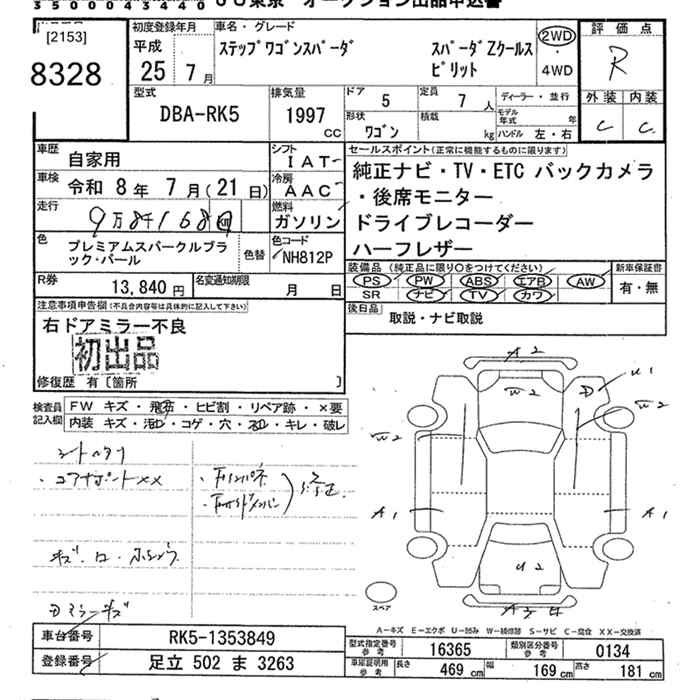 350000443440
JU東京 オークション出品申込書
[2153]
8328
初度登録年月
平成
25年7月
車名・グレード
ステップワゴンスパーダ スパーダZクールス
ピリット
2WD
4WD
評価点
R
外装 内装
C C
型式
DBA-RK5
排気量
1997 CC
ドア 5
定員 7人
形状 ワゴン
積載 kg
ディーラー・並行
モデル年式 年
ハンドル 左・右
車歴 自家用
シフト IAT
車検 令和8年7月(21日)
冷房 AAC
走行 9万8千168 km
燃料 ガソリン
色 プレミアムスパークルブラ
ック・パール
色替
色コード NH812P
R券 13,840円
名変通知期限 月 日
セールスポイント(正常に機能するものに限ります)
純正ナビ・TV・ETC バックカメラ
・後席モニター
ドライブレコーダー
ハーフレザー
装備品(純正品に限り○をつけてください)
PS PW ABS エアB AW
SR ナビ TV カワ
新車保証書
有・無
後日品 取説・ナビ取説
注意事項申告欄(不具合内容等は具体的に記入して下さい)
右ドアミラー不良
初出品
修復歴 有〔箇所 〕
検査員記入欄
FW キズ・飛石・ヒビ割・リペア跡・×要
内装 キズ・汚れ・コゲ・穴・スレ・キレ・破レ
シートハタリ
コアサポートXX
キズ・
ミラーキズ
A2
W2
U1
W2
W2
A1
A1
U2
スペア
A－キズ E－エクボ U－凹み W－補修跡 S－サビ C－腐食 XX－交換済
車台番号 RK5-1353849
登録番号 足立 502 ま 3263
型式指定番号 参考 16365
類別区分番号 参考 0134
車庫証明用 参考 長さ 469 cm 幅 169 cm 高さ 181 cm